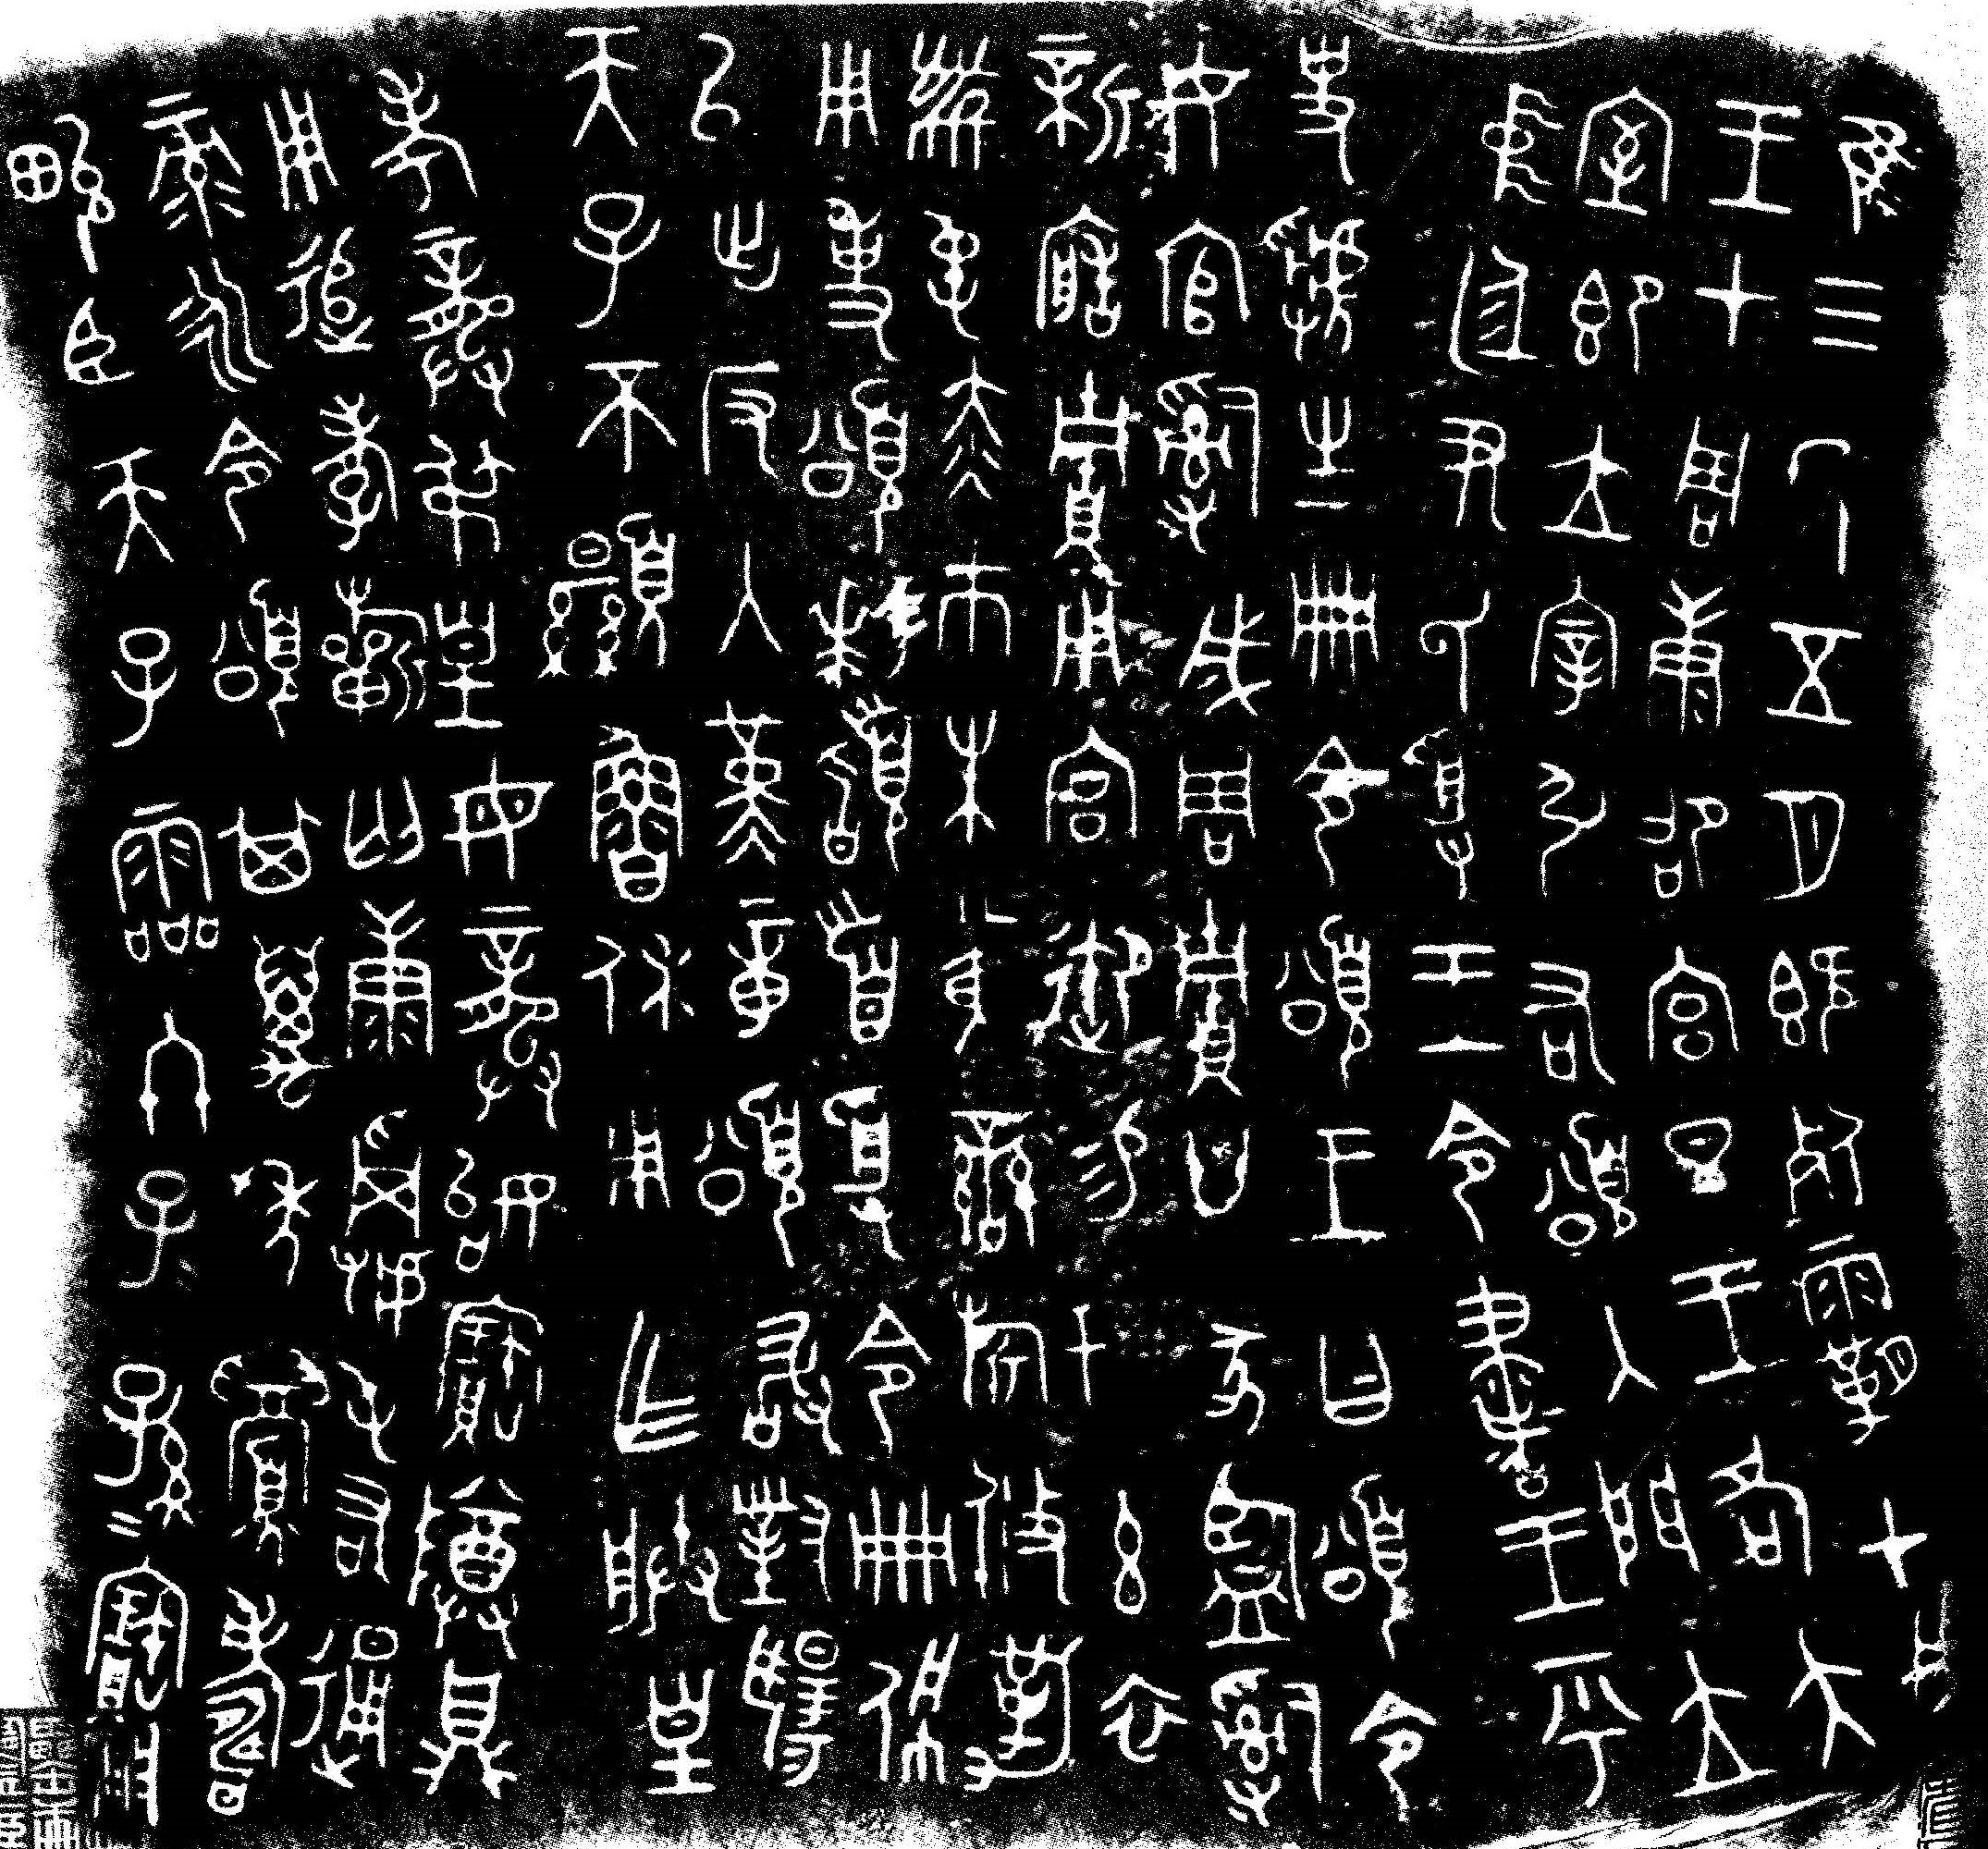 隹三年五月既死霸甲戌
王才周康卲宮旦王各大
室即立宰引右頌入門立
中廷尹氏受王令書王乎
史虢生冊令頌王曰頌令
女官𤔲成周賈廿家監𤔲
新造賈用宮御易女玄衣
黹屯赤巿朱黃䜌旂攸勒
用事頌拜𩒨首受令冊佩
以出反入堇章頌敢對揚
天子不顯魯休用乍朕皇
考龏弔皇母龏始寶尊鼎
用追孝祈匄康𩛥屯右通
彔永令頌其萬年眉壽
畯臣天子霝冬子子孫孫寶用